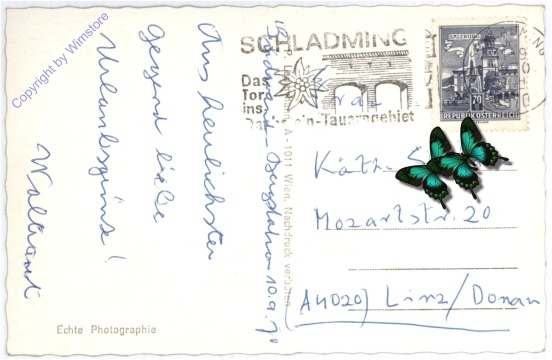 Copyright by Wimstore
Aus herrlichster
Gegend liebe
Urlaubsgrüsse!
Waltraud
Echte Photographie
SCHLADMING
Das
Tor
ins
Dachstein-Tauerngebiet
SALZBURG
70
REPUBLIK ÖSTERREICH
A-1011 Wien, Nachdruck verboten
10.9.70
Frau
Käthe
Mozartstr. 20
(A4020) Linz/Donau